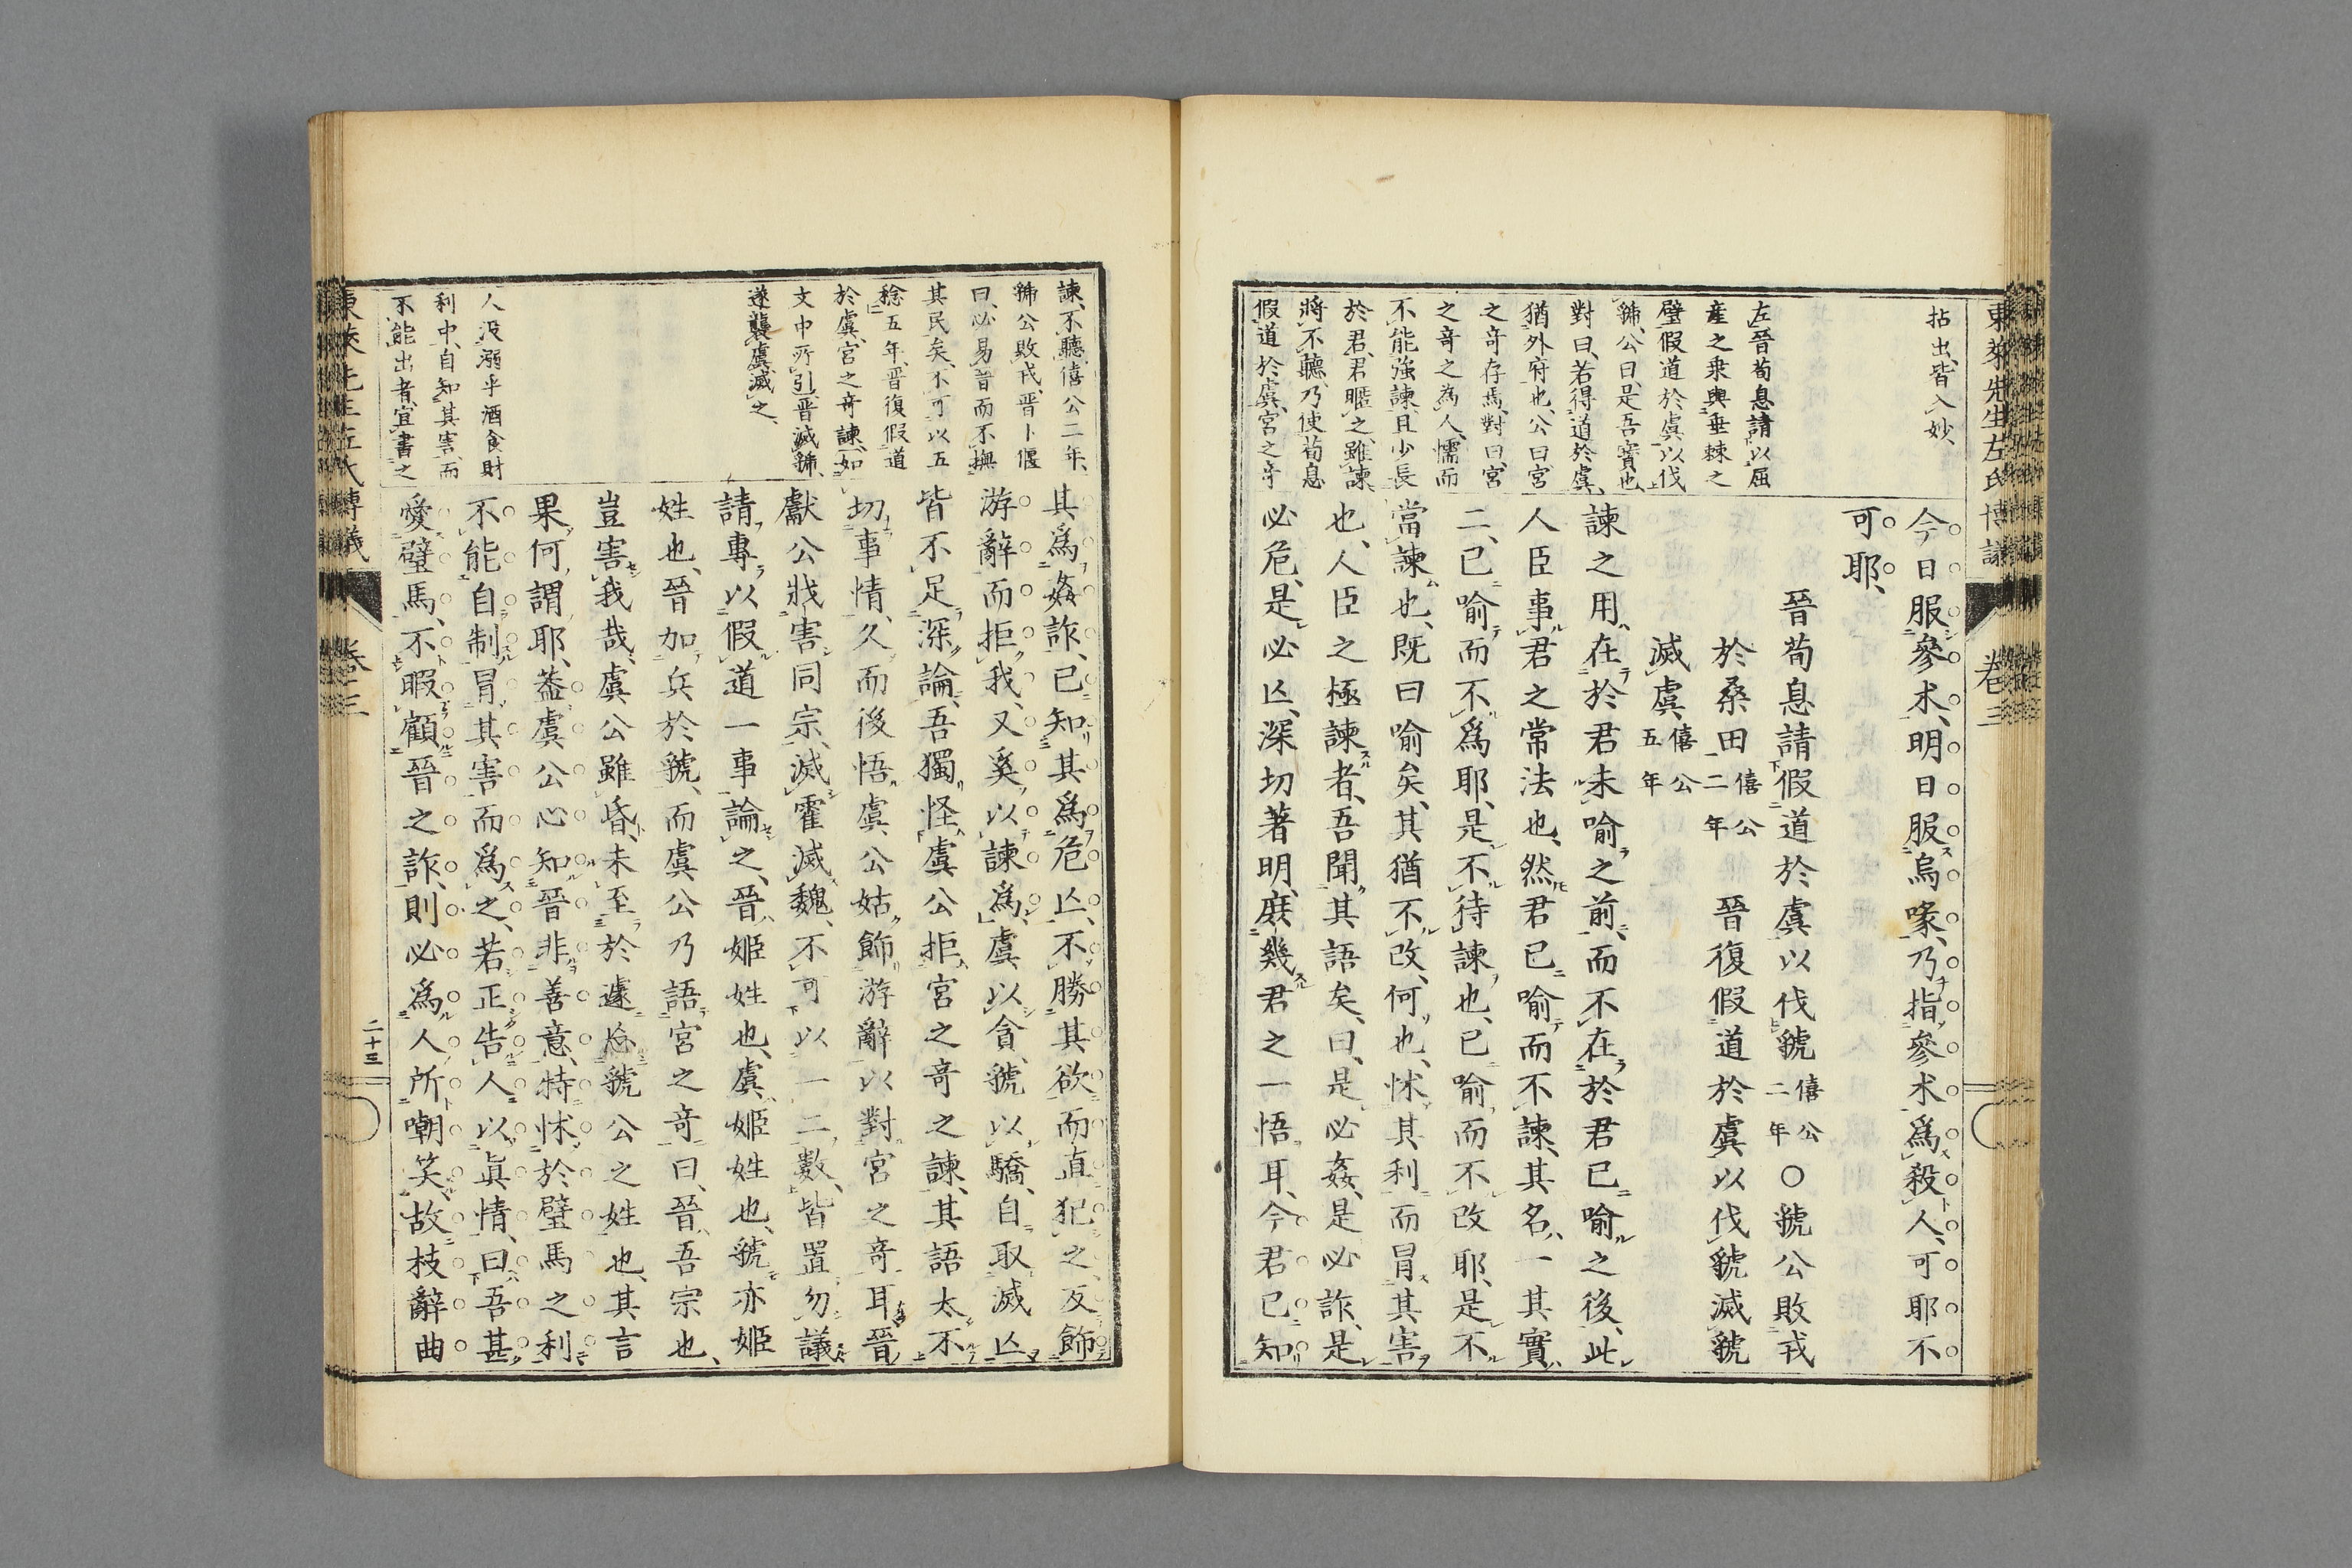 東萊先生左氏博議
卷三
拈出、皆入妙、
左晉荀息請以屈
產之乘與垂棘之
璧假道於虞以伐
虢、公曰、是吾寶也、
對曰、若得道於虞、
猶外府也、公曰宮
之奇存焉、對曰、宮
之奇之為人、懦而
不能強諫、且少長
於君、君暱之、雖諫、
將不聽、乃使荀息
假道於虞、宮之奇
今日服參朮、明日服烏喙、乃指參朮爲殺人、可耶不
可耶、
晉荀息請假道於虞以伐虢僖公二年〇虢公敗戎
於桑田僖公二年 晉復假道於虞以伐虢滅虢
滅虞、僖公五年
諫之用、在於君未喻之前、而不在於君已喻之後、此
人臣事君之常法也、然君已喻而不諫、其名一、其實
二、已喻而不爲耶、是不待諫也、已喻而不改耶、是不
當諫也、既曰喻矣、其猶不改、何也、怵其利而冒其害
也、人臣之極諫者、吾聞其語矣、曰、是必姦、是必詐、是
必危、是必亾、深切著明、庶幾君之一悟耳、今君已知
諫、不聽、僖公二年、
虢公敗戎、晉卜偃
曰、必易晉而不撫
其民矣、不可以五
稔、五年、晉復假道
於虞、宮之奇諫、如
文中所引、晉滅虢、
遂襲虞、滅之、
人汲溺乎酒食財
利中、自知其害、而
不能出者、宜書之
其爲姦詐、已知其爲危亾、不勝其欲而直犯之、反飾
游辭而拒我、又奚以諫爲、虞以貪、虢以驕、自取滅亾
皆不足深論、吾獨怪虞公拒宮之奇之諫、其語太不
切事情、久而後悟、虞公姑飾游辭以對宮之奇耳、晉
獻公戕害同宗、滅霍滅魏、不可以一二數、皆置勿議
請專以假道一事論之、晉、姬姓也、虞、姬姓也、虢亦姬
姓也、晉加兵於虢、而虞公乃語宮之奇曰、晉、吾宗也、
豈害我哉、虞公雖昏、未至於遽忘虢公之姓也、其言
果何謂耶、葢虞公心知晉非善意、特怵於璧馬之利
不能自制、冒其害而爲之、若正告人以眞情、曰、吾甚
愛璧馬、不暇顧晉之詐、則必爲人所嘲笑、故枝辭曲
東萊先生左氏博議
卷三
二十三